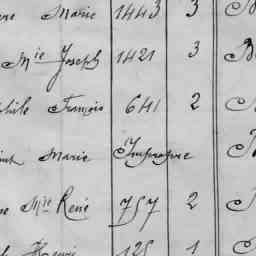 Marie 1443 3
Mie Joseph 1421 3
François 641 2
Marie Impropre
Mie René 757 2
125 1